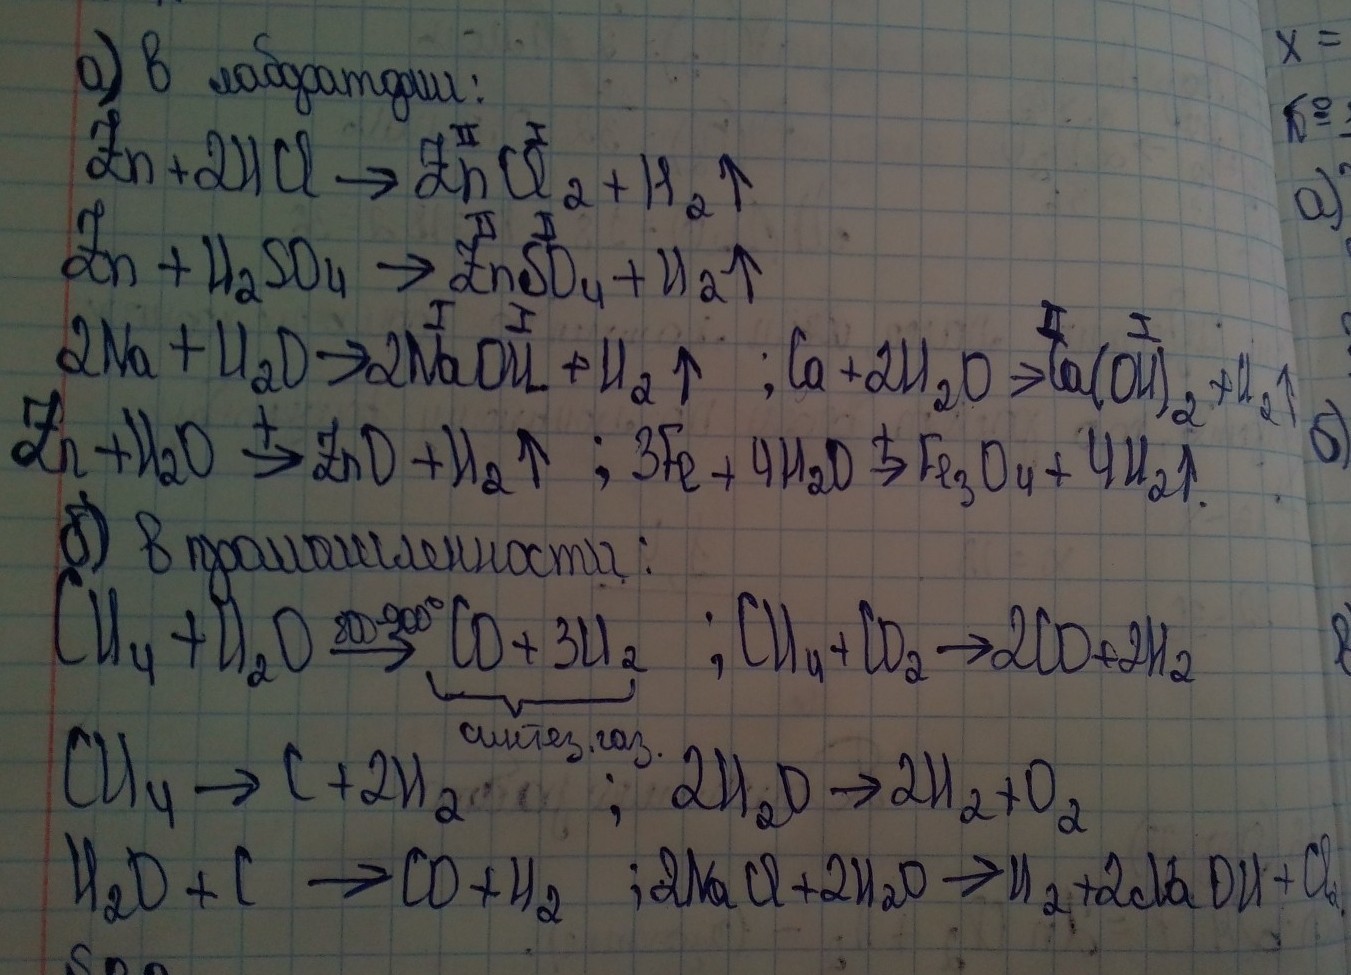 а) в лаборатории: x =
Zn + 2HCl → ZnCl₂ + H₂↑
II I
Zn + H₂SO₄ → ZnSO₄ + H₂↑ а)
II II
2Na + H₂O → 2NaOH + H₂↑ ; Ca + 2H₂O → Ca(OH)₂ + H₂↑
I I II I
Zn + H₂O →ᵗ ZnO + H₂↑ ; 3Fe + 4H₂O →ᵗ Fe₃O₄ + 4H₂↑. б)
б) в промышленности:
CH₄ + H₂O 800-900° → CO + 3H₂ ; CH₄ + CO₂ → 2CO + 2H₂
синтез. газ.
CH₄ → C + 2H₂ ; 2H₂O → 2H₂ + O₂
H₂O + C → CO + H₂ ; 2NaCl + 2H₂O → H₂ + 2NaOH + Cl₂